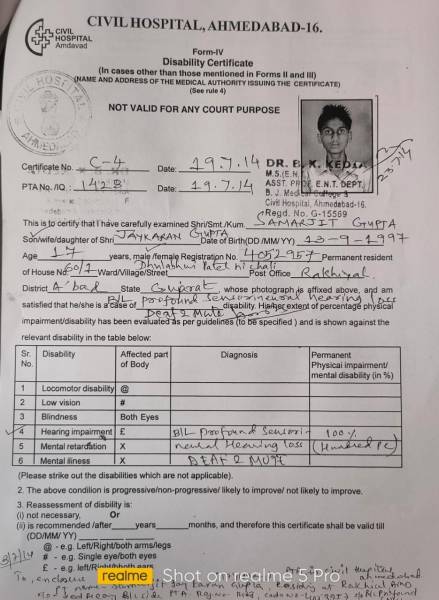 CIVIL HOSPITAL, AHMEDABAD-16.
CIVIL
HOSPITAL
Amdavad
Form-IV
Disability Certificate
(In cases other than those mentioned in Forms II and III)
(NAME AND ADDRESS OF THE MEDICAL AUTHORITY ISSUING THE CERTIFICATE)
(See rule 4)
NOT VALID FOR ANY COURT PURPOSE
Certificate No. C-4 Date: 19.7.14
PTA No./IQ.: 142B Date: 19.7.14
DR. B. K. KEDIA
M.S.(E.N.T.)
ASST. PROF. E.N.T. DEPT.
B. J. Medical College &
Civil Hospital, Ahmedabad-16.
Regd. No. G-15569
23/7/14
This is to certify that I have carefully examined Shri/Smt./Kum. SAMARJIT GUPTA
Son/wife/daughter of Shri JAYKARAN GUPTA Date of Birth(DD/MM/YY) 13-9-1997
Age 17 years, male/female Registration No. 4052957 Permanent resident
of House No. 60/1 Ward/Village/Street Patel ni chali Post Office Rakhiyal
District A'bad State Gujarat whose photograph is affixed above, and am
satisfied that he/she is a case of B/L profound sensorineural hearing loss disability. His/her extent of percentage physical
Deaf & Mute
impairment/disability has been evaluated as per guidelines (to be specified ) and is shown against the
relevant disability in the table below:
Sr. No. Disability Affected part of Body Diagnosis Permanent Physical impairment/ mental disability (in %)
1 Locomotor disability @
2 Low vision #
3 Blindness Both Eyes
4 Hearing impairment £ B/L profound sensori- 100%
5 Mental retardation X neural Hearing loss (Hundred PC)
6 Mental illness X DEAF & MUTE
(Please strike out the disabilities which are not applicable).
2. The above condition is progressive/non-progressive/ likely to improve/ not likely to improve.
3. Reassessment of disability is:
(i) not necessary, Or
(ii) is recommended /after____years____months, and therefore this certificate shall be valid till
(DD/MM/ YY)
@ - e.g. Left/Right/both arms/legs
# - e.g. Single eye/both eyes
£ - e.g. left/Right/bhoth ears
civil Hospital
ahmedabad
Jay karan Gupta, Rakhial
realme Shot on realme 5 Pro